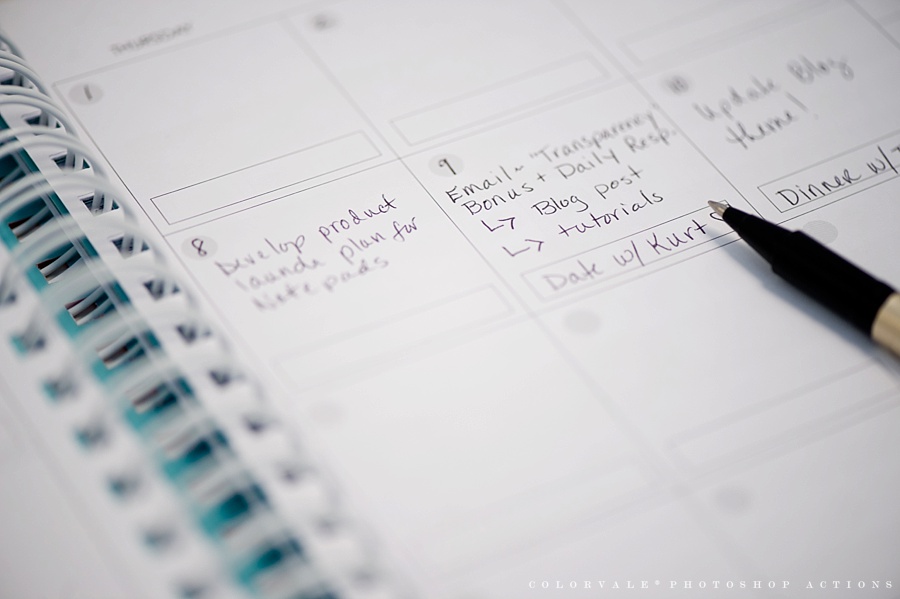 THURSDAY
1
8
Develop product
launch plan for
Notepads
9
Email ~ "Transparency"
Bonus + Daily Resp.
↳ Blog post
↳ tutorials
Date w/ Kurt ♡
10
Update Blog
theme!
Dinner w/
COLORVALE® PHOTOSHOP ACTIONS